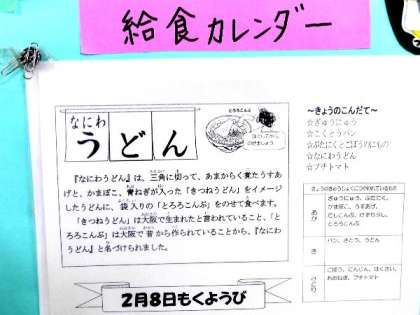 給食カレンダー
なにわ
うどん
とろろこんぶ
『なにわうどん』は、三角に切って、あまからく煮たうすあ
げと、かまぼこ、青ねぎが入った「きつねうどん」をイメージ
したうどんに、袋入りの「とろろこんぶ」をのせて食べます。
「きつねうどん」は大阪で生まれたと言われていること、「と
ろろこんぶ」は大阪で昔から作られていることから、『なにわ
うどん』と名づけられました。
2月8日もくようび
～きょうのこんだて～
☆ぎゅうにゅう
☆こくとうパン
☆ぶたにくとごぼうのにもの
☆なにわうどん
☆プチトマト
あか
ぎゅうにゅう、ぶたにく、
かまぼこ、うすあげ、
とろろこんぶ
き
パン、さとう、うどん
みどり
ごぼう、にんじん、はくさい、